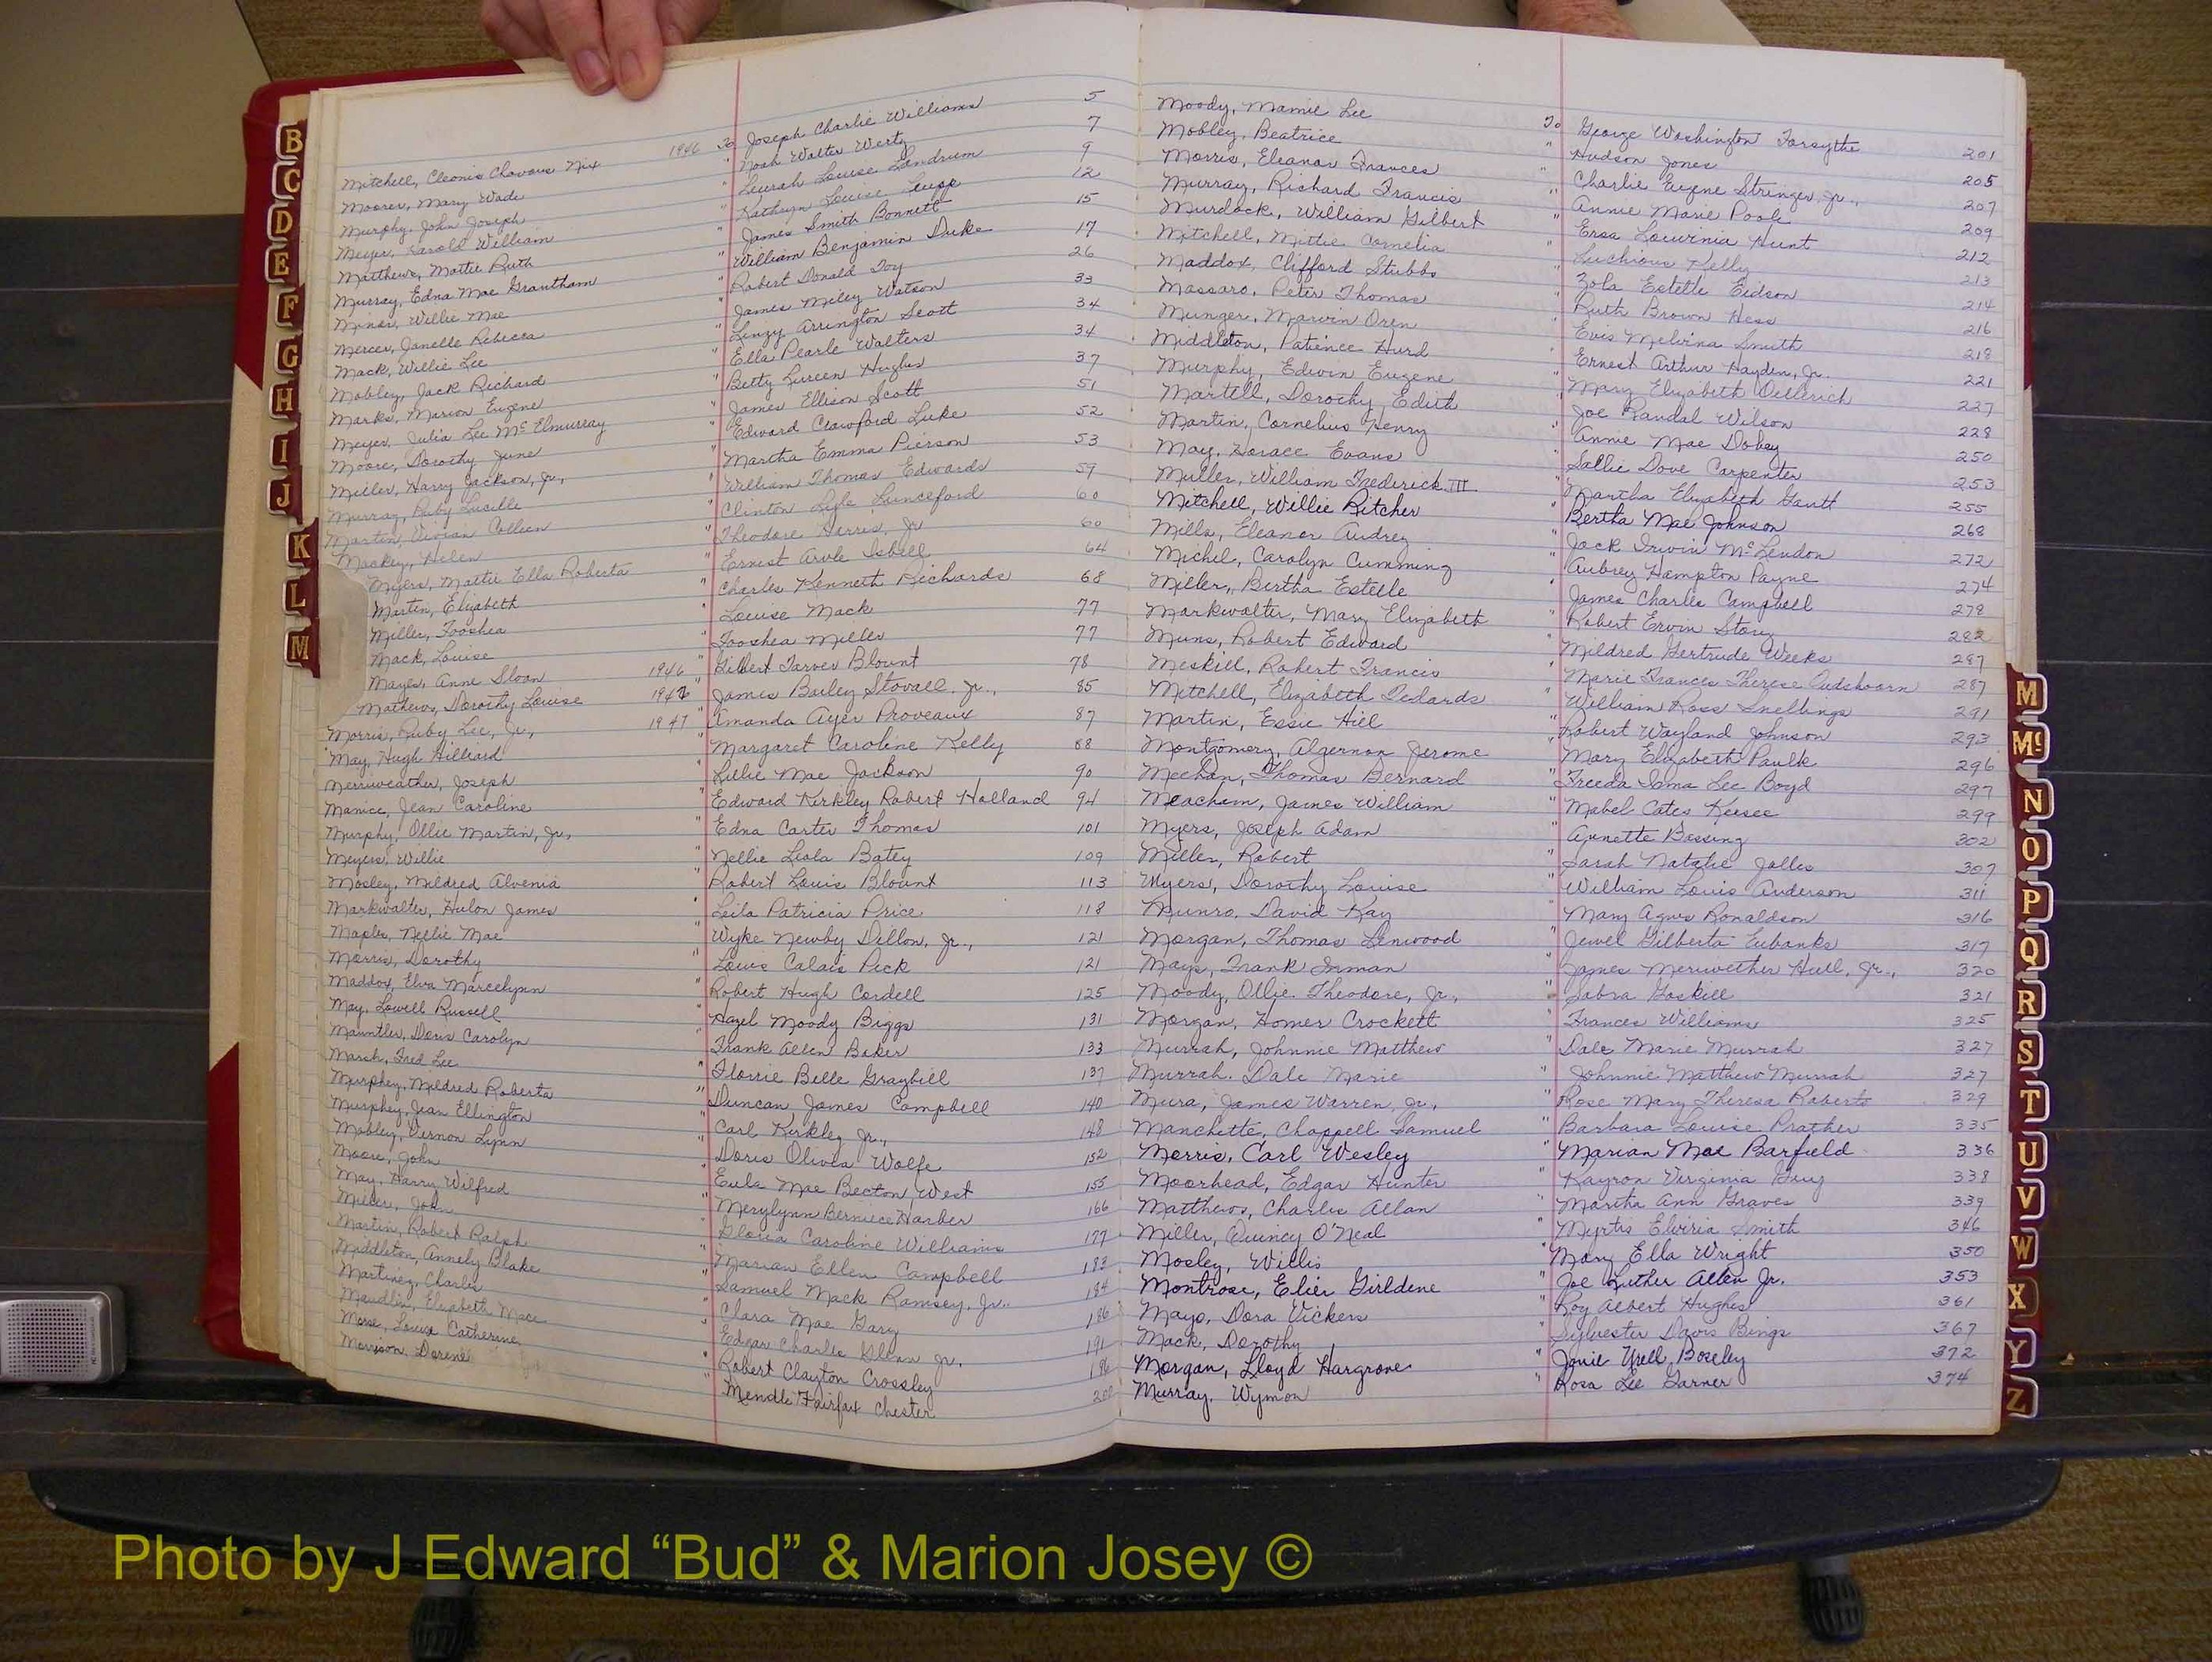 Mitchell, Cleonis Chavous Nix 1946 To Joseph Charlie Williams 5
Moorer, Mary Wade " Noah Walter Wertz 7
Murphy, John Joseph " Leurah Louise Landrum 9
Meyer, Harold William " Kathryn Louise 12
Matthews, Mattie Ruth " James Smith Bonnett 15
Murray, Edna Mae Grantham " William Benjamin Duke 17
Miner, Willie Mae " Robert Donald Toy 26
Mercer, Janelle Rebecca " James Miley Watson 33
Mack, Willie Lee " Linzy Arrington Scott 34
Mobley, Jack Richard " Ella Pearle Walters 34
Marks, Marion Eugene " Betty Lureen Hughes 37
Meyer, Julia Lee McElmurray " James Ellison Scott 51
Moore, Dorothy June " Edward Crawford Luke 52
Miller, Harry Jackson, Jr., " Martha Emma Pierson 53
Murray, Ruby Lucille " William Thomas Edwards 59
Martin, Vivian Colleen " Clinton Lyle Lunceford 60
Mackey, Helen " Theodore Harris, Jr 60
Myers, Mattie Ella Roberta " Ernest Arvle Isbell 64
Martin, Elizabeth " Charles Kenneth Richards 68
Miller, Tooshea " Louise Mack 77
Mack, Louise " Tooshea Miller 77
Mayes, Anne Sloan 1946 " Gilbert Tarver Blount 78
Mathews, Dorothy Louise 1946 " James Bailey Stovall, Jr., 85
Morris, Ruby Lee, Jr., 1947 " Amanda Ayer Proveaux 87
May, Hugh Hilliard " Margaret Caroline Kelly 88
Merriweather, Joseph " Lillie Mae Jackson 90
Manice, Jean Caroline " Edward Kirkley Robert Holland 94
Murphy, Ollie Martin, Jr., " Edna Carter Thomas 101
Meyers, Willie " Nellie Leola Batey 109
Mosley, Mildred Alvenia " Robert Louis Blount 113
Markwalter, Hulon James " Leila Patricia Price 118
Maples, Nellie Mae " Wyke Newby Dillon, Jr., 121
Morris, Dorothy " Louis Calais Peck 121
Maddox, Elva Marcelynn " Robert Hugh Cordell 125
May, Lowell Russell " Hazel Moody Biggs 131
Mauntler, Doris Carolyn " Frank Allen Baker 133
Marsh, Fred Lee " Florrie Belle Graybill 137
Murphey, Mildred Roberta " Duncan James Campbell 140
Murphey, Jean Ellington " Carl Kirkley Jr., 148
Mobley, Vernon Lynn " Doris Olivea Wolfe 152
Moore, John " Eula Mae Becton West 155
May, Harry Wilfred " Merylynn Berniece Harber 166
Miller, John " Gloria Caroline Williams 177
Martin, Robert Ralph " Marian Ellen Campbell 183
Middleton, Annely Blake " Samuel Mack Ramsey, Jr.. 184
Martinez, Charles " Clara Mae Gary 186
Maudlin, Elizabeth Mace " Edgar Charles Jr. 191
Morse, Louise Catherine " Robert Clayton Crossley 196
Morrison, Dorene " Mendle Fairfax Chester 200
Moody, Mamie Lee To George Washington Forsythe 201
Mobley, Beatrice " Hudson Jones 205
Morris, Eleanor Frances " Charlie Eugene Stringer, Jr., 207
Murray, Richard Francis " Annie Marie Poole 209
Murdock, William Gilbert " Ersa Louvinia Hunt 212
Mitchell, Mittie Cornelia " Luchious Kelly 213
Maddox, Clifford Stubbs " Zola Estelle Eidson 214
Massaro, Peter Thomas " Ruth Brown Hess 216
Munger, Marvin Oren " Evis Melvina Smith 218
Middleton, Patience Hurd " Ernest Arthur Hayden, Jr. 221
Murphy, Edwin Eugene " Mary Elizabeth Dillerich 227
Martell, Dorothy Edith " Joe Randal Wilson 228
Martin, Cornelius Henry " Annie Mae Dobey 250
May, Horace Evans " Sallie Dove Carpenter 253
Muller, William Frederick III " Martha Elizabeth Gantt 255
Mitchell, Willie Pitcher " Bertha Mae Johnson 268
Mills, Eleanor Audrey " Jack Irwin McLendon 272
Michel, Carolyn Cumming " Aubrey Hampton Payne 274
Miller, Bertha Estelle " James Charles Campbell 278
Markwalter, Mary Elizabeth " Robert Ervin Story 282
Muns, Robert Edward " Mildred Gertrude Weeks 287
Meskill, Robert Francis " Marie Frances Therese Oudshoorn 287
Mitchell, Elizabeth Tedards " William Ross Snellings 291
Martin, Essie Hill " Robert Wayland Johnson 293
Montgomery, Algernon Jerome " Mary Elizabeth Paulk 296
Meehan, Thomas Bernard " Freeda Isma Lee Boyd 297
Meachem, James William " Mabel Cates Keesee 299
Myers, Joseph Adam " Annette Bassing 302
Miller, Robert " Sarah Natalie Jolles 307
Myers, Dorothy Louise " William Louis Anderson 311
Munro, David Kay " Mary Agnes Ronaldson 316
Morgan, Thomas Linwood " Jewel Gilberta Eubanks 317
Mays, Frank Inman " James Meriwether Hull, Jr., 320
Moody, Ollie Theodore, Jr., " Sabra Gaskill 321
Morgan, Homer Crockett " Frances Williams 325
Murrah, Johnnie Matthew " Dale Marie Murrah 327
Murrah, Dale Marie " Johnnie Matthew Murrah 327
Mura, James Warren, Jr., " Rose Mary Theresa Roberts 329
Manchette, Chappell Samuel " Barbara Louise Prather 335
Morris, Carl Wesley " Marian Mae Barfield 336
Moorhead, Edgar Hunter " Kayron Virginia Guy 338
Matthews, Charlie Allan " Martha Ann Graves 339
Miller, Quincy O'Neal " Myrtis Elviria Smith 346
Mosley, Willis " Mary Ella Wright 350
Montrose, Elier Girldene " Joe Luther Allen Jr. 353
Mayo, Dora Vickers " Roy Albert Hughes 361
Mack, Dorothy " Sylvester Davis Bings 367
Morgan, Lloyd Hargrove " Janie Urell Boseley 372
Murray, Wymon " Rosa Lee Garner 374
B
C
D
E
F
G
H
I
J
K
L
M
M
Mc
N
O
P
Q
R
S
T
U
V
W
X
Y
Z
Photo by J Edward “Bud” & Marion Josey ©